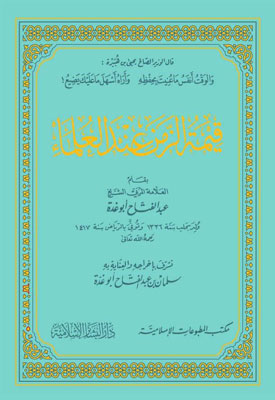 قال الوزير الصالح يحيى بن هبيرة :
والوقت أنفس ما عنيت بحفظه وأراه أسهل ما عليك يضيع !
قيمة الزمن عند العلماء
بقلم
العلامة المربي الشيخ
عبد الفتاح أبو غدة
ولد بحلب سنة ١٣٣٦ وتوفي بالرياض سنة ١٤١٧
رحمه الله تعالى
تشرف بإخراجه والعناية به
سلمان بن عبد الفتاح أبو غدة
مكتب المطبوعات الإسلامية
دار البشائر الإسلامية